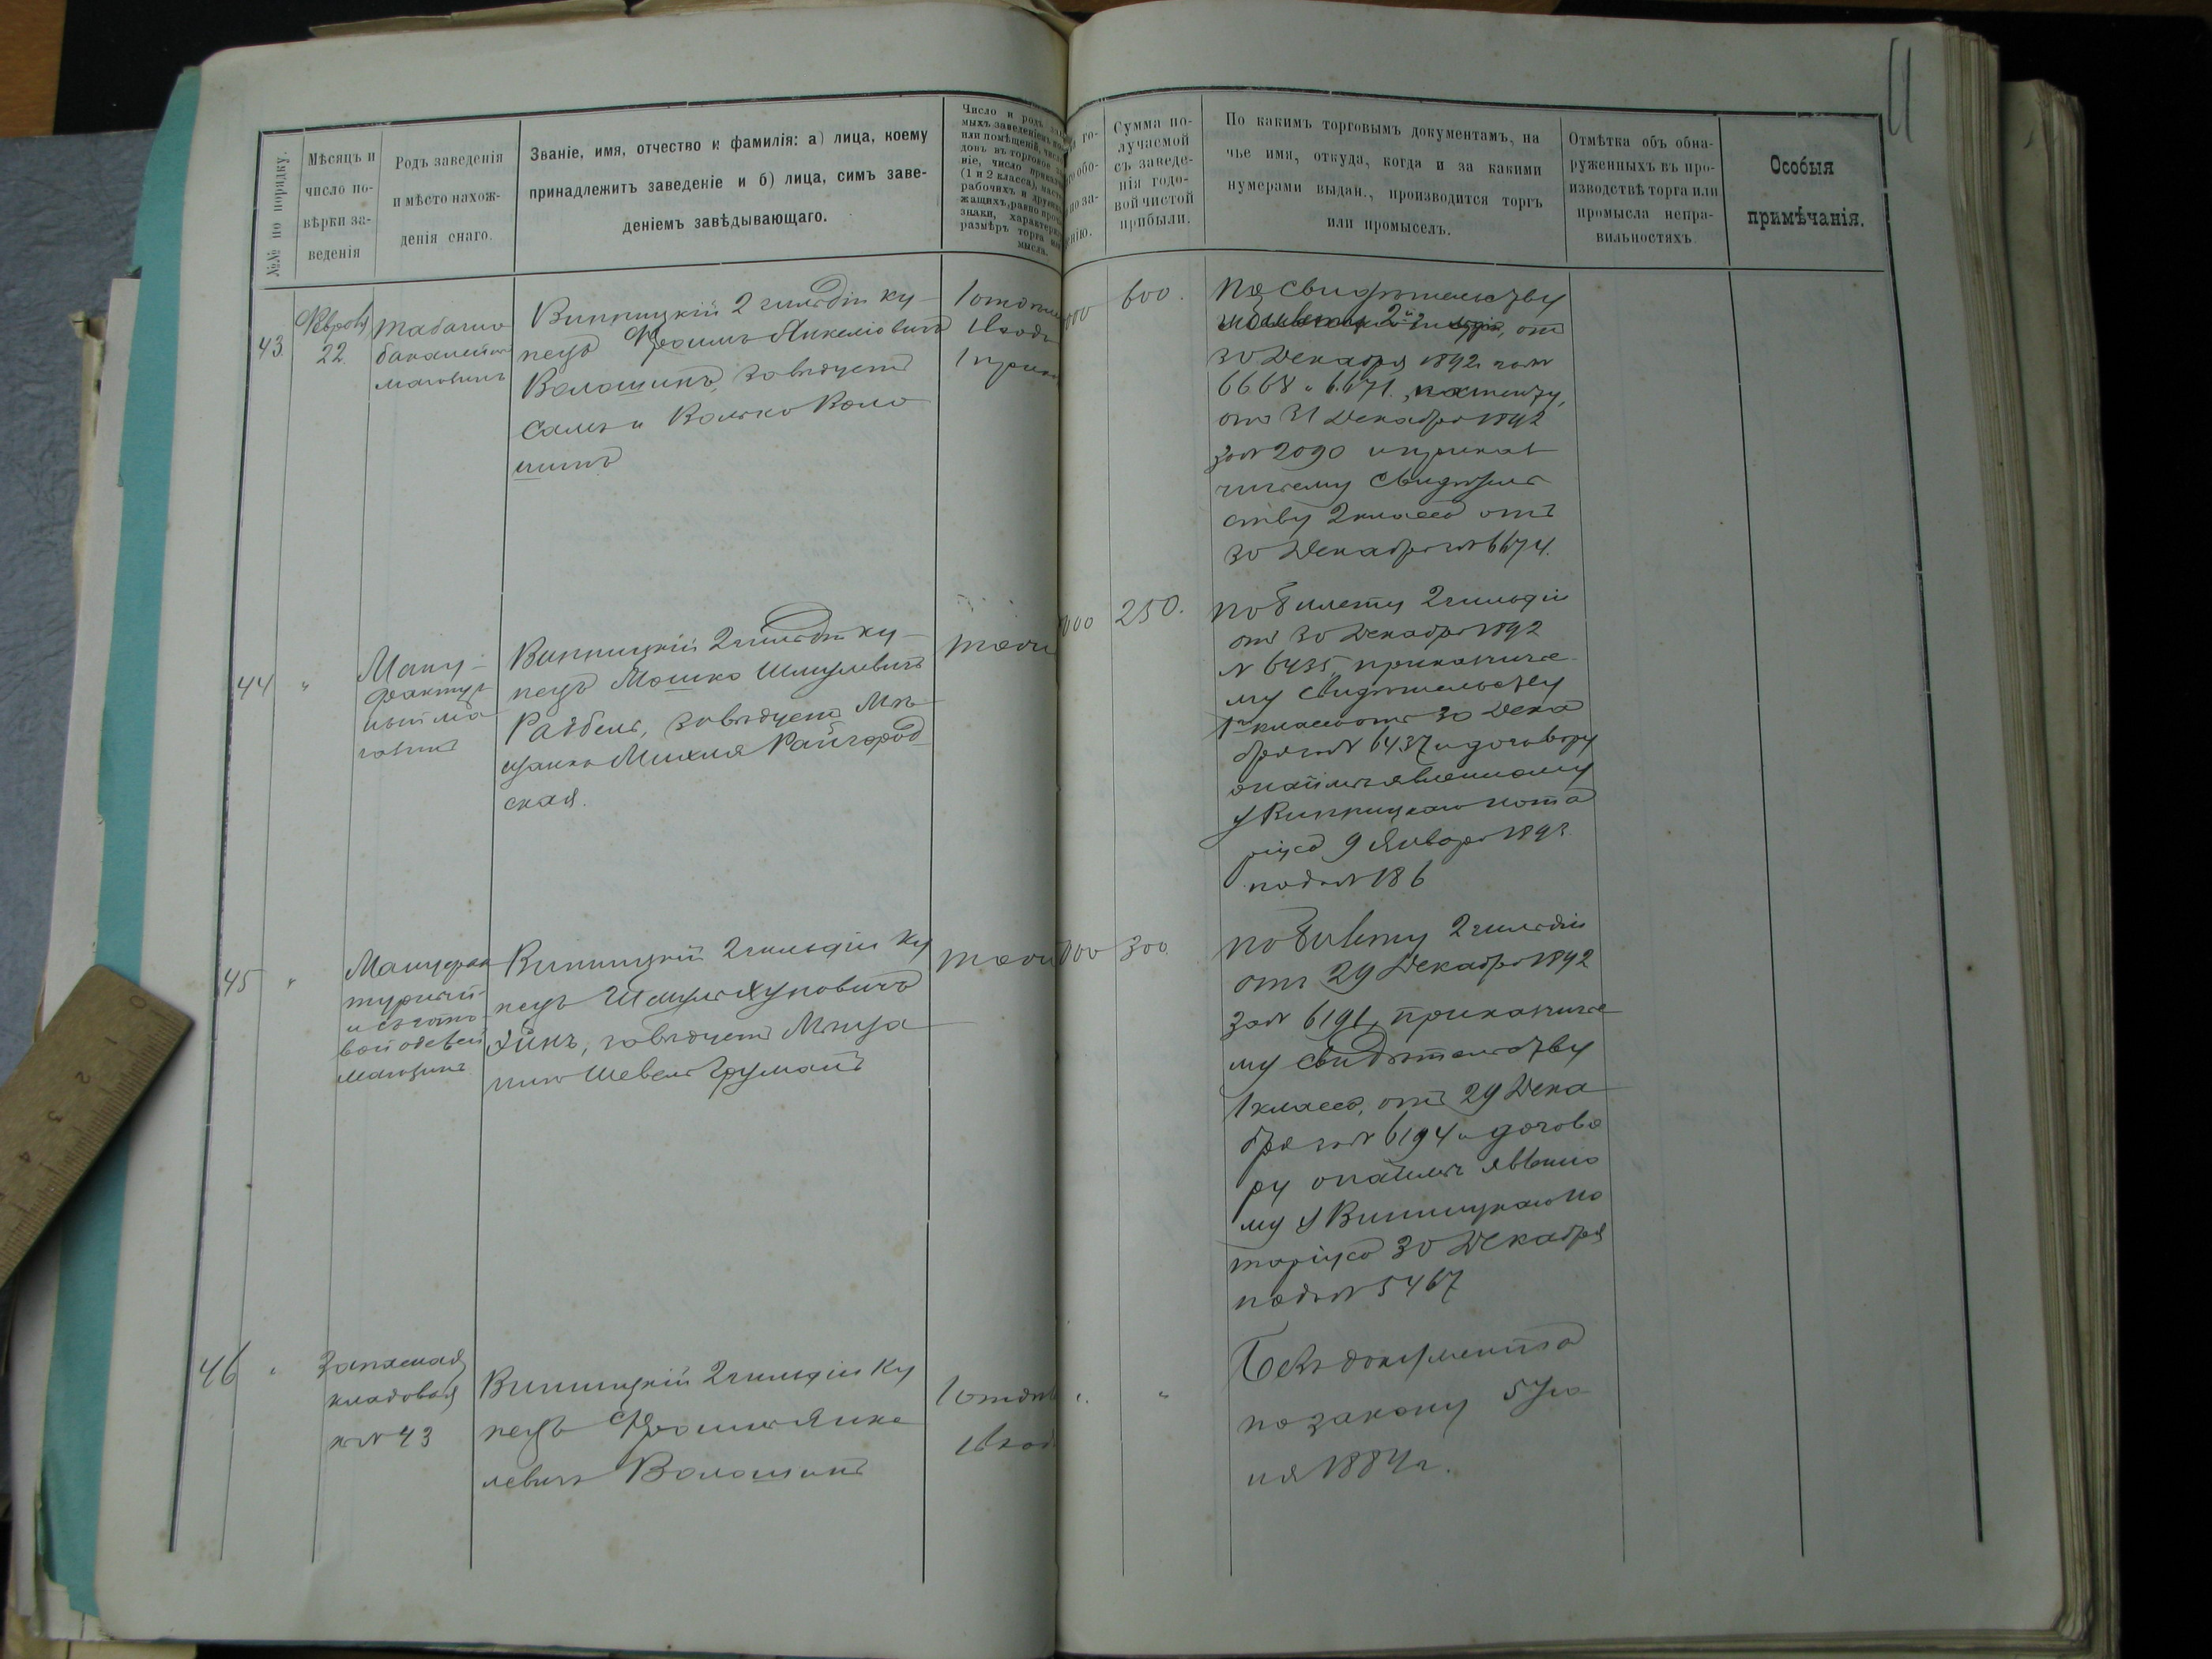 11
№№ по порядку.
Мѣсяцъ и
число по-
вѣрки за-
веденія
Родъ заведенія
и мѣсто нахож-
денія онаго.
Званіе, имя, отчество и фамилія: а) лица, коему
принадлежитъ заведеніе и б) лица, симъ заве-
деніемъ завѣдывающаго.
Число и родъ
мыхъ заведеніемъ
или помѣщеній, число
довъ въ торговое за
ніе, число приказч
(1 и 2 класса), маст
рабочихъ и други
жащихъ, равно проч
знаки, характери
размѣръ торга или
мысла.
го-
обо-
по за-
енію.
Сумма по-
лучаемой
съ заведе-
нія годо-
вой чистой
прибыли.
По какимъ торговымъ документамъ, на
чье имя, откуда, когда и за какими
нумерами выдан., производится торгъ
или промыселъ.
Отмѣтка объ обна-
руженныхъ въ про-
изводствѣ торга или
промысла непра-
вильностяхъ
Особыя
примѣчанія.
43.
Февраля
22.
Табачно
бакалейный
магазинъ
Винницкій 2 гильдіи ку-
пецъ Фроимъ Янкеліовичъ
Волошинъ, завѣдуетъ
самъ и Волько Воло
шинъ
1 отдѣл
1 входъ
1 прик
000
600.
По свидѣтельству
2й гильдіи, отъ
30 Декабря 1892 г. за №
6668 и 6671, патенту,
отъ 31 Декабря 1892
за № 2090 и прикаſ
чичьему свидѣтель
ству 2 класса отъ
30 Декабря за № 6674.
44
"
Ману-
фактур
ный ма
газинъ
Винницкій 2 гильдіи ку-
пецъ Мошко Шмулевичъ
Файбель, завѣдуетъ Мѣ-
щанка Михля Райгород
ская.
тоже
000
250.
По билету 2 гильдіи
отъ 30 Декабря 1892
№ 6435, приказчичье-
му свидѣтельству
1го класса отъ 30 Дека
бря за № 6437 и договору
о наймѣ явленному
у Винницкаго нота
ріуса 9 Января 1893
подъ № 186
45
"
Мануфак
турный
и готов
вой одежи
магазинъ
Винницкій 2 гильдіи ку
пецъ Шмуль Хуновичъ
завѣдуетъ Мѣща
нинъ Шевель Груманъ
тоже
000
300.
По билету 2 гильдіи
отъ 29 Декабря 1892
за № 6191, приказчичье
му свидѣтельству
1 класса, отъ 29 Дека
бря за № 6194 и догово
ру о наймѣ явленно
му у Винницкаго но
таріуса 30 Декабря
подъ № 5467
46
"
Запасная
кладовая
къ № 43
Винницкій 2 гильдіи ку
пецъ Фроимъ Янке
левичъ Волошинъ
1 отдѣл
1 вход
"
"
Безъ документа
по закону 5 Ію
ня 1884 г.
0
1
2
3
4